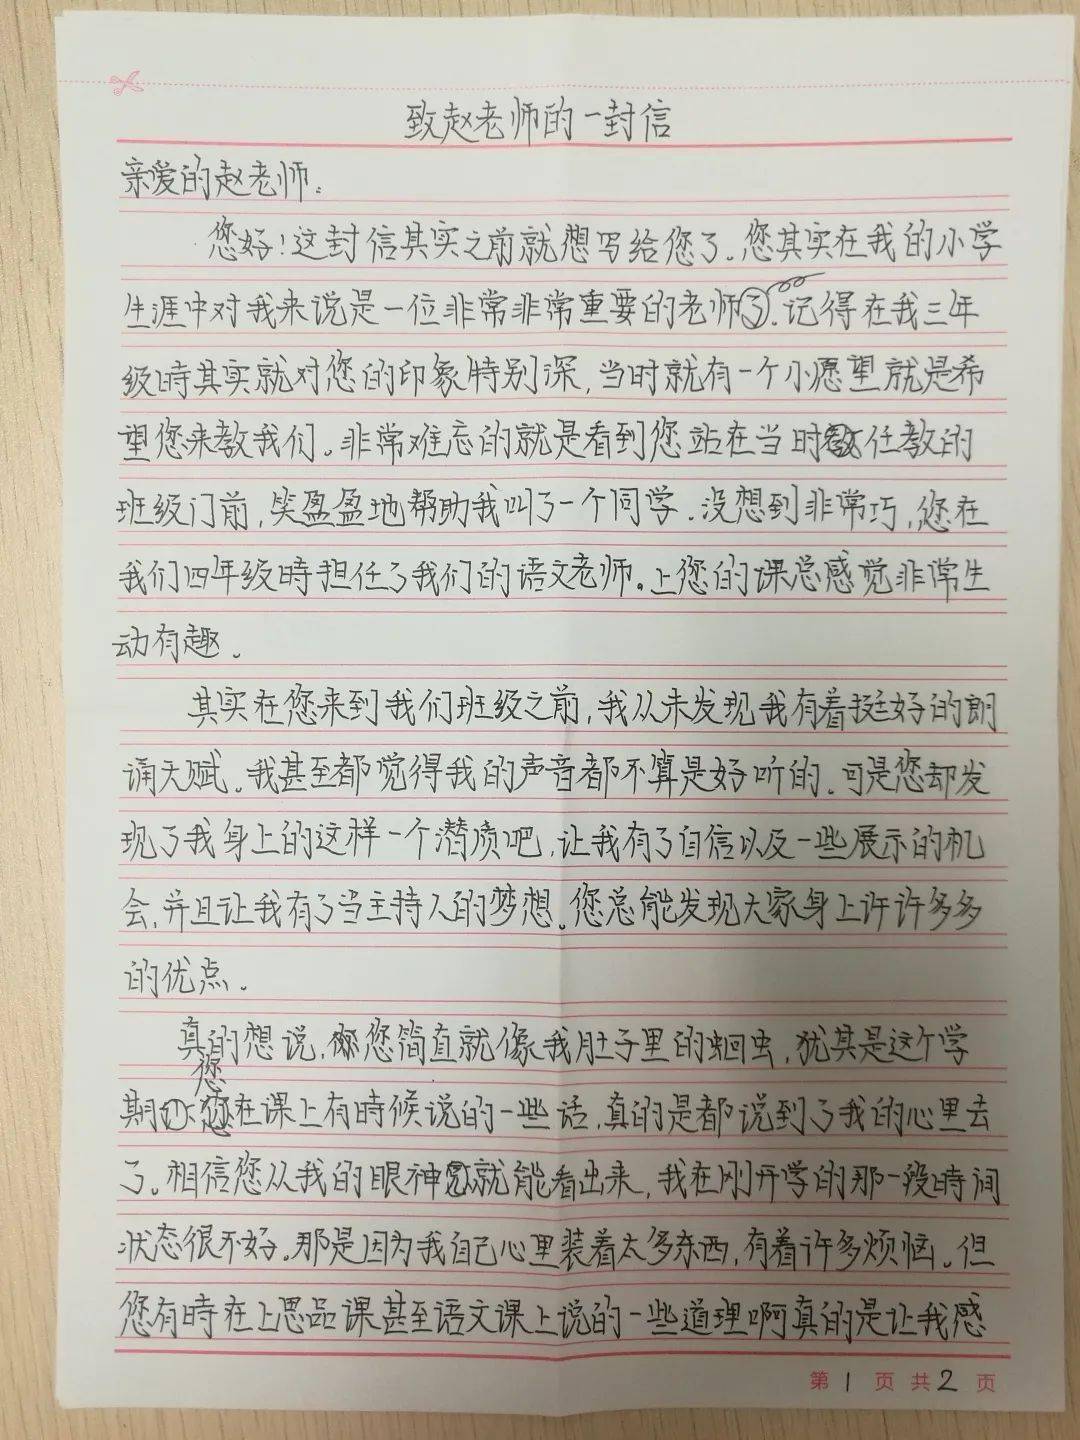 致赵老师的一封信
亲爱的赵老师:
您好!这封信其实之前就想写给您了。您其实在我的小学
生涯中对我来说是一位非常非常重要的老师。记得在我三年
级时其实就对您的印象特别深,当时就有一个小愿望就是希
望您来教我们。非常难忘的就是看到您站在当时任教的
班级门前,笑盈盈地帮助我叫了一个同学。没想到非常巧,您在
我们四年级时担任了我们的语文老师。上您的课总感觉非常生
动有趣。
其实在您来到我们班级之前,我从未发现我有着挺好的朗
诵天赋。我甚至都觉得我的声音都不算是好听的。可是您却发
现了我身上的这样一个潜质吧,让我有了自信以及一些展示的机
会,并且让我有了当主持人的梦想。您总能发现大家身上许许多多
的优点。
真的想说,您简直就像我肚子里的蛔虫,犹其是这个学
期您在课上有时候说的一些话,真的是都说到了我的心里去
了。相信您从我的眼神就能看出来,我在刚开学的那一段时间
状态很不好。那是因为我自己心里装着太多东西,有着许多烦恼。但
您有时在上思品课甚至语文课上说的一些道理啊真的是让我感
第1页共2页